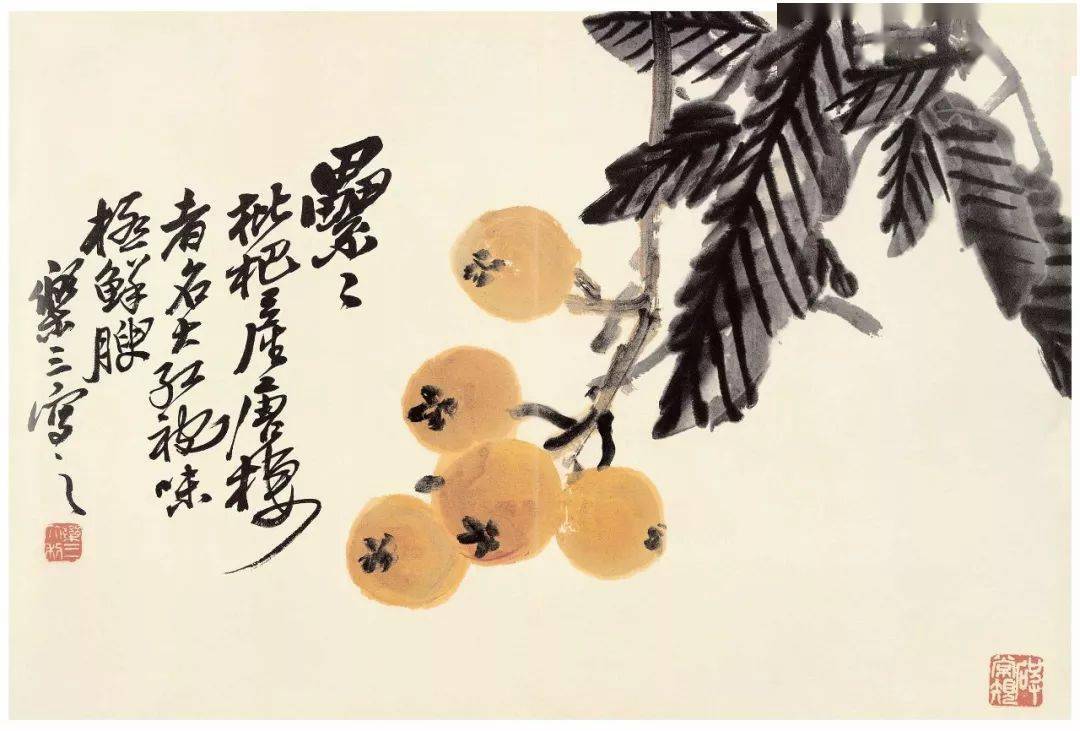 纍〻
枇杷產唐棲
者名大紅袍味
極鮮腴
樂三寫之